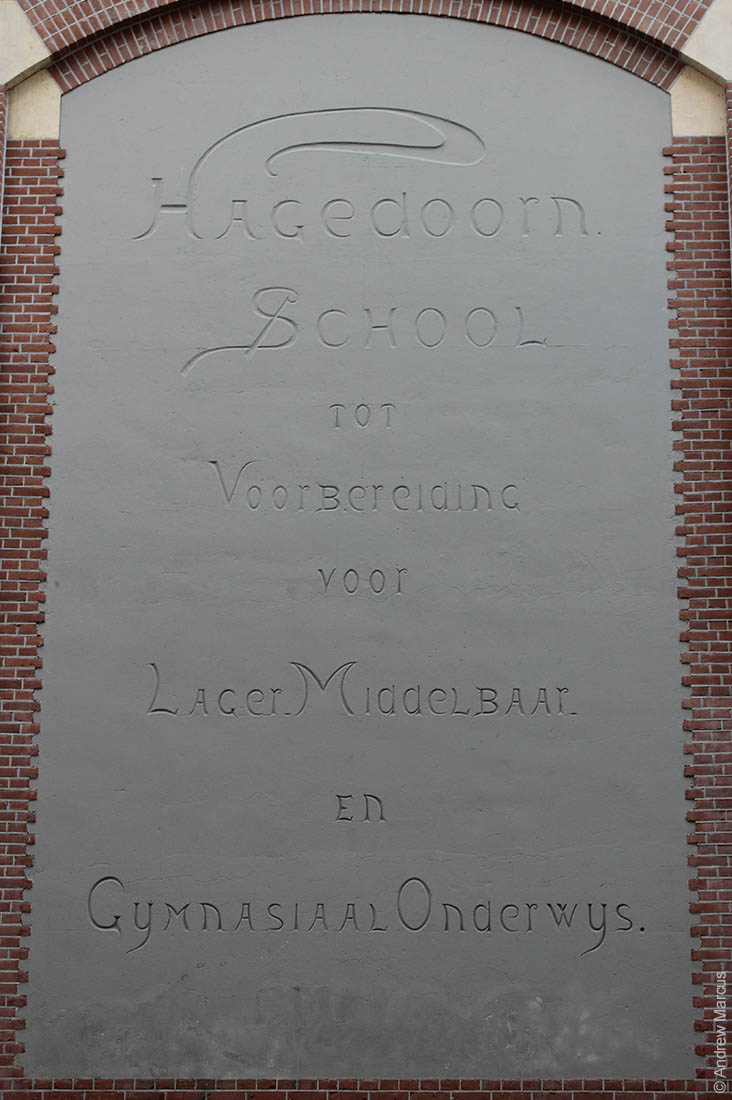 Hagedoorn.
School
tot
Voorbereiding
voor
Lager. Middelbaar.
en
Gymnasiaal Onderwys.
© Andrew Marcus